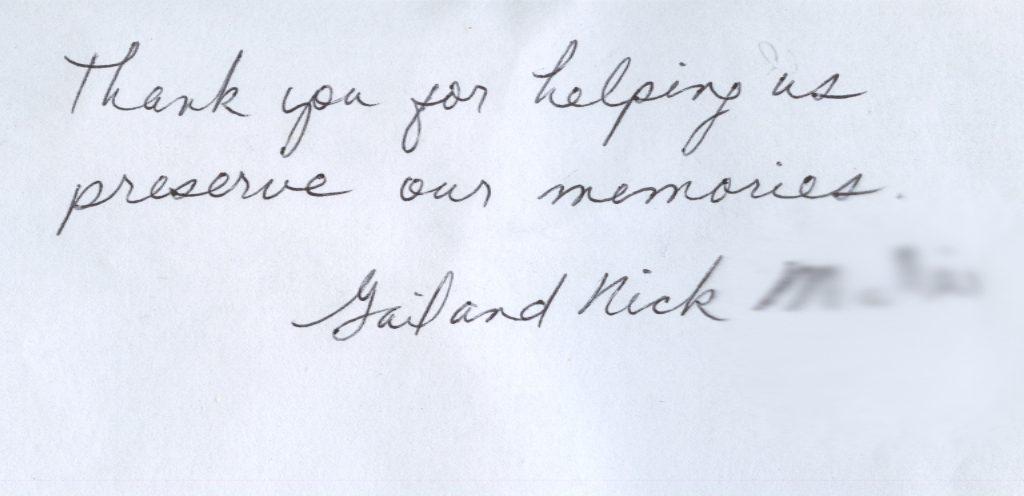 Thank you for helping us
preserve our memories.
Gail and Nick